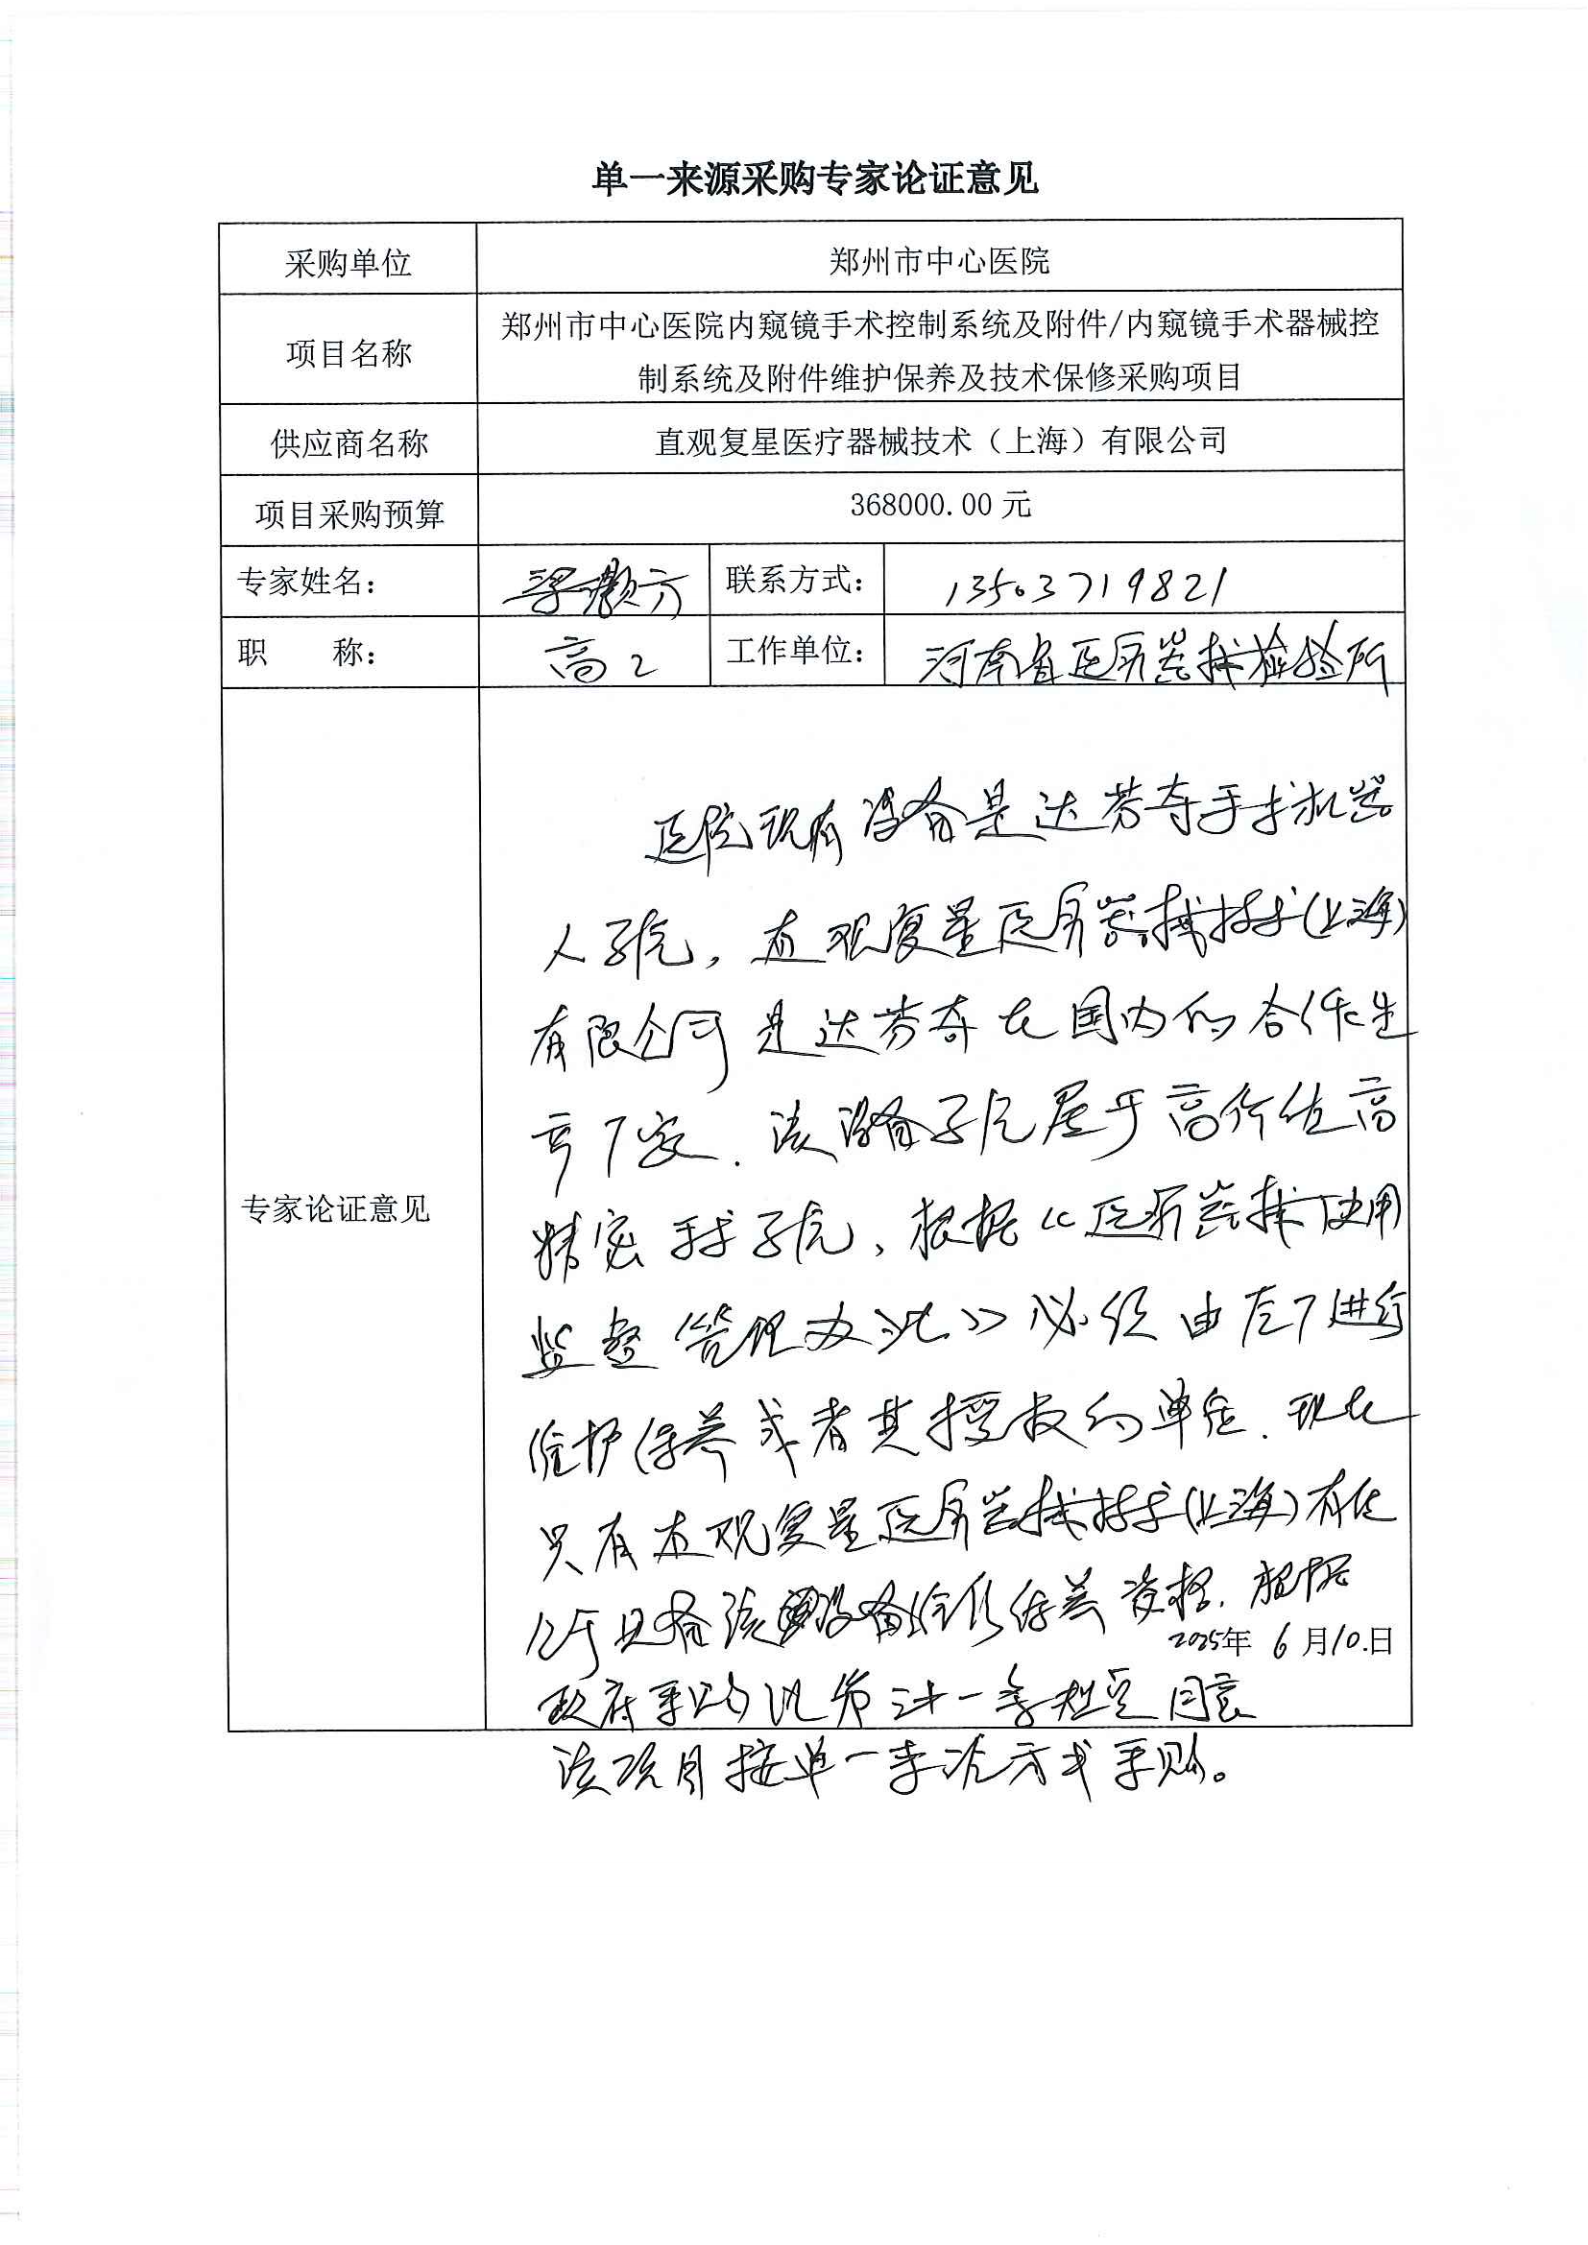 单一来源采购专家论证意见
采购单位 郑州市中心医院
项目名称 郑州市中心医院内窥镜手术控制系统及附件/内窥镜手术器械控
制系统及附件维护保养及技术保修采购项目
供应商名称 直观复星医疗器械技术（上海）有限公司
项目采购预算 368000.00 元
专家姓名： 梁颢方 联系方式： 13503719821
职 称： 高工 工作单位： 河南省医疗器械检验所
专家论证意见
医院现有设备是达芬奇手术机器
人系统，直观复星医疗器械技术(上海)
有限公司是达芬奇在国内的合作生
产厂家.该设备系统属于高价值高
精密手术系统,根据《医疗器械使用
监督管理办法》必须由原厂进行
维护保养或者其授权的单位.现在
只有直观复星医疗器械技术(上海)有限
公司具备该设备维修保养资格.根据
2025年 6 月10.日
政府采购法第三十一条规定同意
该项目按单一来源方式采购。